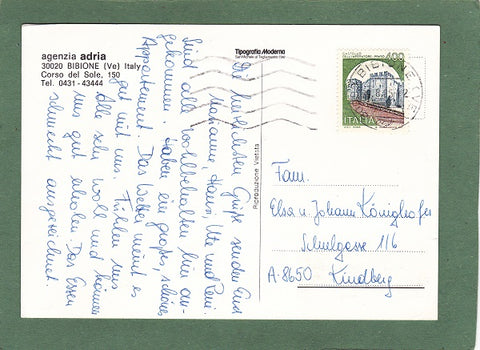 agenzia adria
30020 BIBIONE (Ve) Italy
Corso del Sole, 150
Tel. 0431 - 43444
Tipografia Moderna
Riproduzione Vietata
Die herzlichsten Grüße senden Euch
Marianne, Hansi, Ute und
Sind alle wohlbehalten hier an-
gekommen. Haben ein großes, schönes
Appartement. Das Wetter meint es
gut mit uns. Fühlen uns
alle sehr wohl und können
uns gut erholen. Das Essen
schmeckt ausgezeichnet.
400
ITALIA
BIBIONE (VE)
Fam.
Elsa u. Johann Königshofer
Schulgasse 116
A-8650 Kindberg